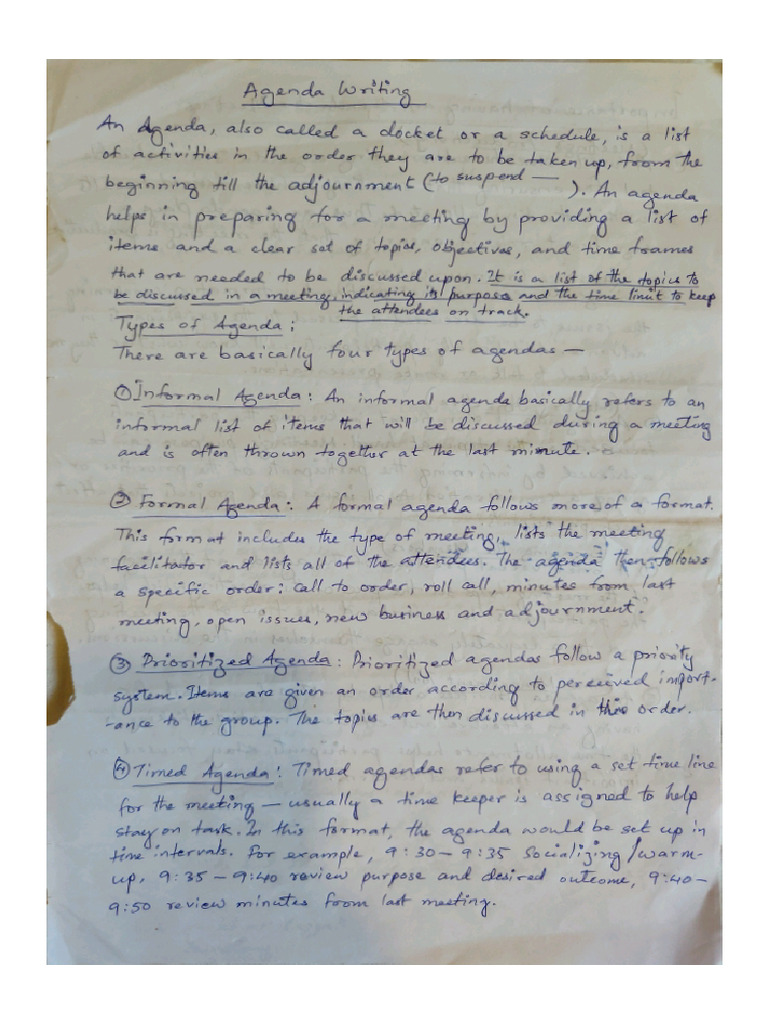 Agenda Writing
An Agenda, also called a docket or a schedule, is a list
of activities in the order they are to be taken up, from the
beginning till the adjournment (to suspend —). An agenda
helps in preparing for a meeting by providing a list of
items and a clear set of topics, objectives, and time frames
that are needed to be discussed upon. It is a list of the topics to
be discussed in a meeting, indicating its purpose and the time limit to keep
the attendees on track.
Types of Agenda:
There are basically four types of agendas —
① Informal Agenda: An informal agenda basically refers to an
informal list of items that will be discussed during a meeting
and is often thrown together at the last minute.
② Formal Agenda: A formal agenda follows more of a format.
This format includes the type of meeting, lists the meeting
facilitator and lists all of the attendees. The agenda then follows
a specific order: call to order, roll call, minutes from last
meeting, open issues, new business and adjournment.
③ Prioritized Agenda: Prioritized agendas follow a priority
system. Items are given an order according to perceived import-
-ance to the group. The topics are then discussed in this order.
④ Timed Agenda: Timed agendas refer to using a set time line
for the meeting — usually a time keeper is assigned to help
stay on task. In this format, the agenda would be set up in
time intervals. For example, 9:30 – 9:35 Socializing/warm-
up, 9:35 – 9:40 review purpose and desired outcome, 9:40 –
9:50 review minutes from last meeting.